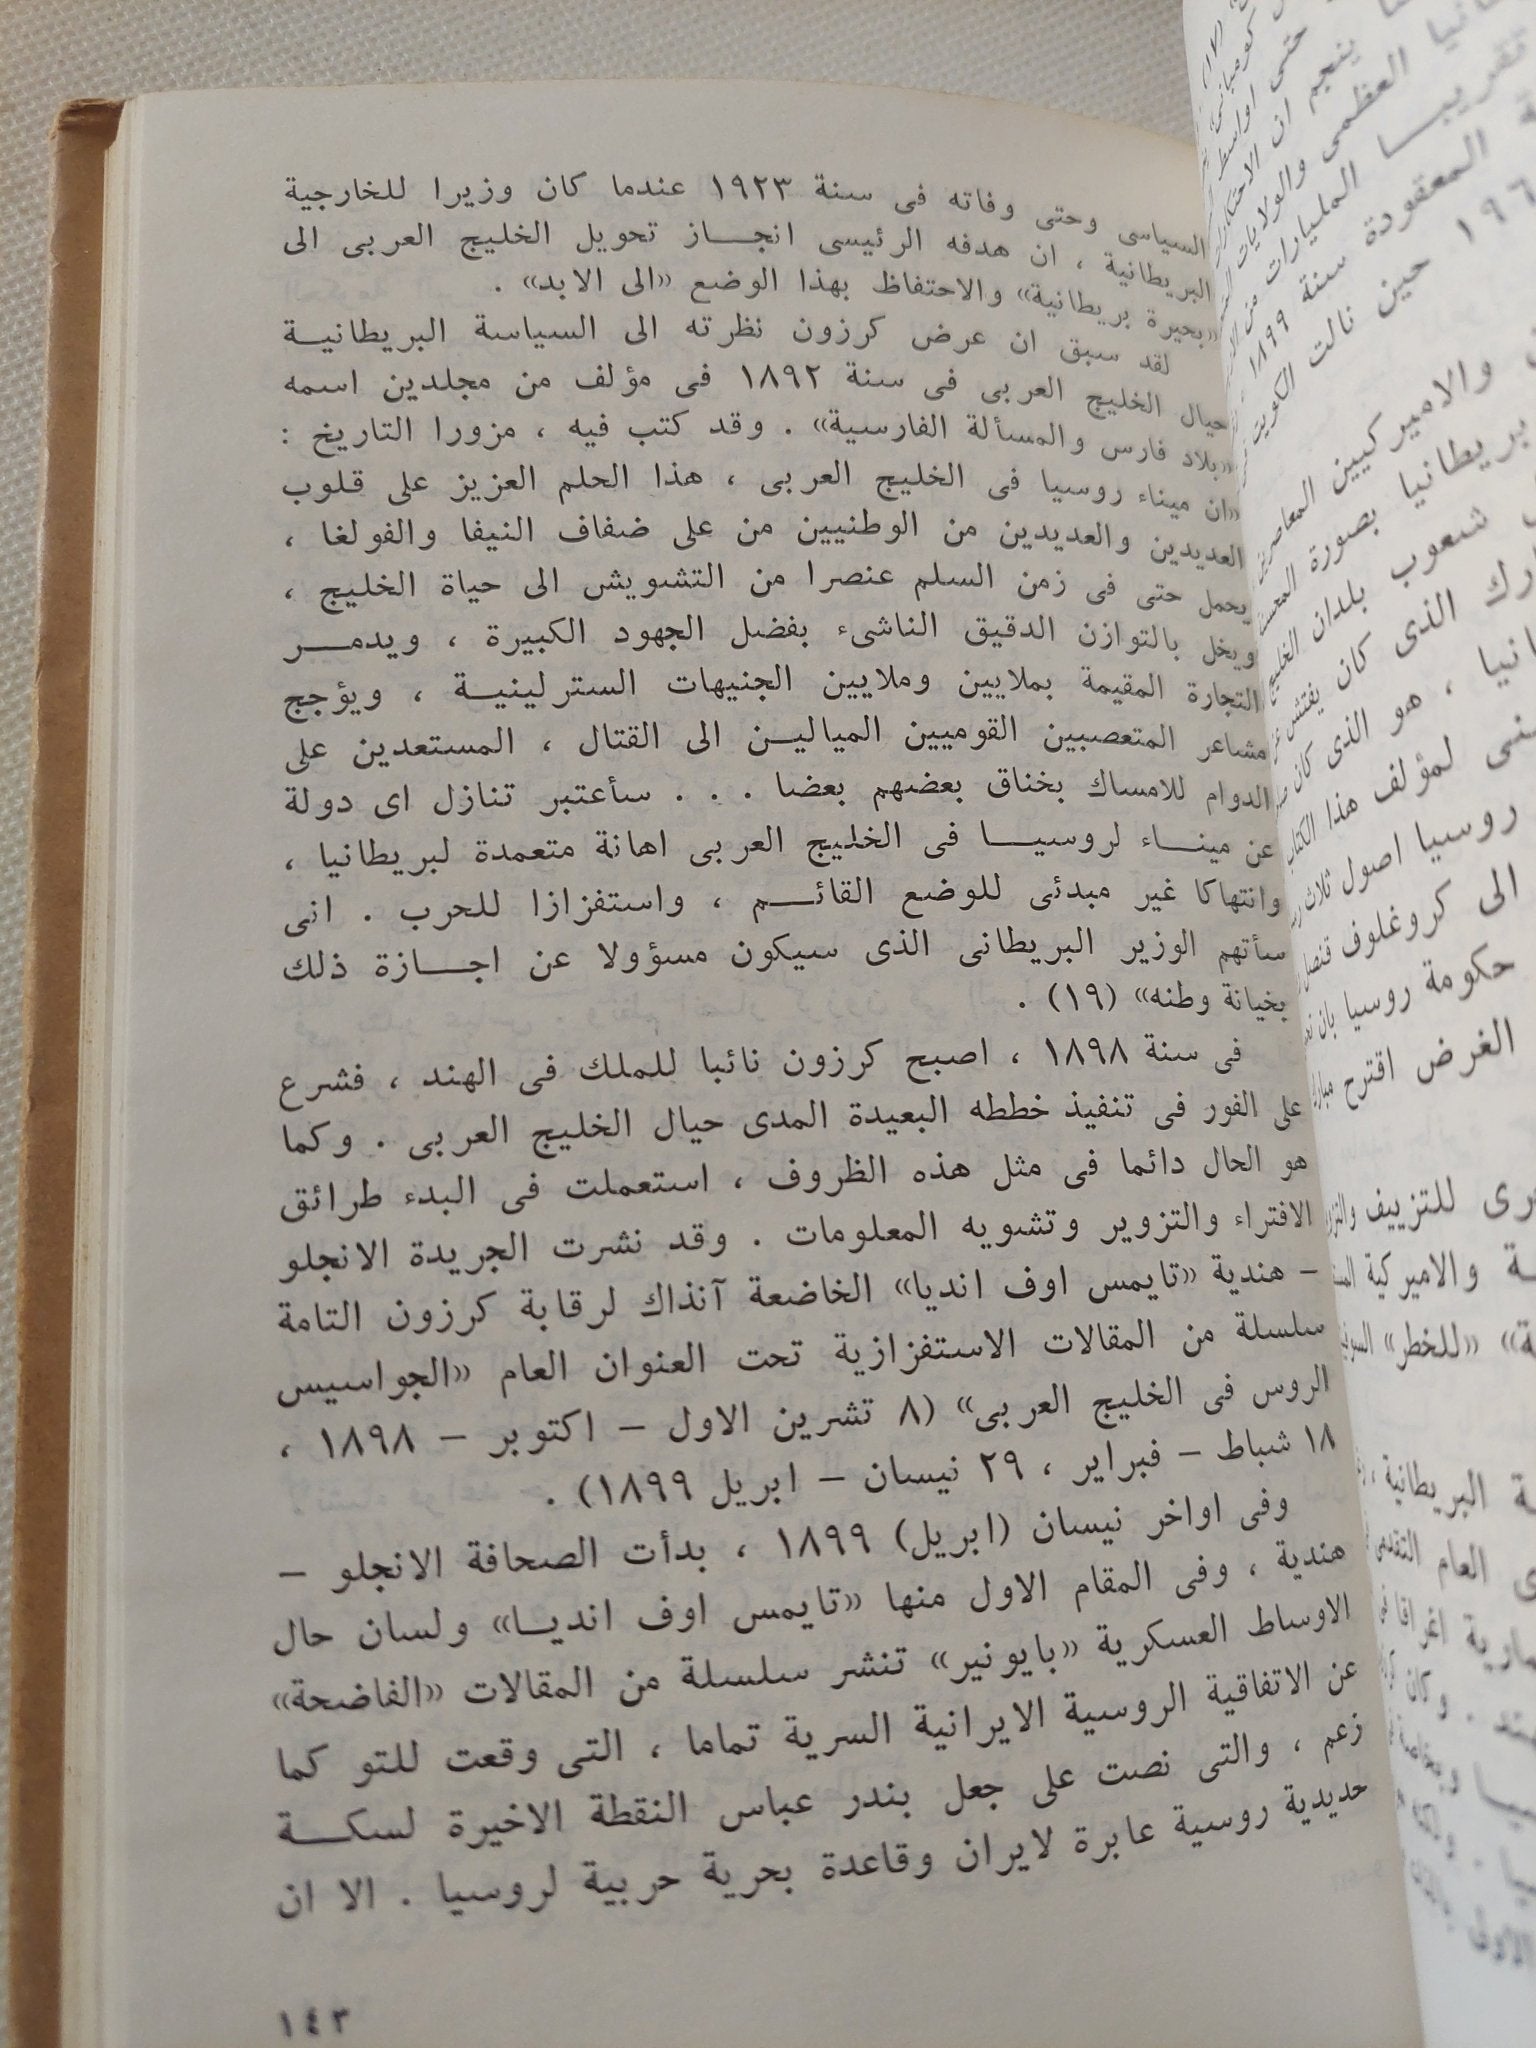 السياسى وحتى وفاته فى سنة ١٩٢٣ عندما كان وزيرا للخارجية
البريطانية ، ان هدفه الرئيسى انجاز تحويل الخليج العربى الى
«بحيرة بريطانية» والاحتفاظ بهذا الوضع «الى الابد» .
لقد سبق ان عرض كرزون نظرته الى السياسة البريطانية
حيال الخليج العربى فى سنة ١٨٩٢ فى مؤلف من مجلدين اسمه
«بلاد فارس والمسألة الفارسية» . وقد كتب فيه ، مزورا التاريخ :
«ان ميناء روسيا فى الخليج العربى ، هذا الحلم العزيز على قلوب
العديدين والعديدين من الوطنيين من على ضفاف النيفا والفولغا ،
يحمل حتى فى زمن السلم عنصرا من التشويش الى حياة الخليج ،
ويخل بالتوازن الدقيق الناشىء بفضل الجهود الكبيرة ، ويدمر
التجارة المقيمة بملايين وملايين الجنيهات السترلينية ، ويؤجج
مشاعر المتعصبين القوميين الميالين الى القتال ، المستعدين على
الدوام للامساك بخناق بعضهم بعضا . . . سأعتبر تنازل اى دولة
عن ميناء لروسيا فى الخليج العربى اهانة متعمدة لبريطانيا ،
وانتهاكا غير مبدئى للوضع القائم ، واستفزازا للحرب . انى
سأتهم الوزير البريطانى الذى سيكون مسؤولا عن اجازة ذلك
بخيانة وطنه» (١٩) .
فى سنة ١٨٩٨ ، اصبح كرزون نائبا للملك فى الهند ، فشرع
على الفور فى تنفيذ خططه البعيدة المدى حيال الخليج العربى . وكما
هو الحال دائما فى مثل هذه الظروف ، استعملت فى البدء طرائق
الافتراء والتزوير وتشويه المعلومات . وقد نشرت الجريدة الانجلو
– هندية «تايمس اوف انديا» الخاضعة آنذاك لرقابة كرزون التامة
سلسلة من المقالات الاستفزازية تحت العنوان العام «الجواسيس
الروس فى الخليج العربى» (٨ تشرين الاول – اكتوبر – ١٨٩٨ ،
١٨ شباط – فبراير ، ٢٩ نيسان – ابريل ١٨٩٩) .
وفى اواخر نيسان (ابريل) ١٨٩٩ ، بدأت الصحافة الانجلو –
هندية ، وفى المقام الاول منها «تايمس اوف انديا» ولسان حال
الاوساط العسكرية «بايونير» تنشر سلسلة من المقالات «الفاضحة»
عن الاتفاقية الروسية الايرانية السرية تماما ، التى وقعت للتو كما
زعم ، والتى نصت على جعل بندر عباس النقطة الاخيرة لسكة
حديدية روسية عابرة لايران وقاعدة بحرية حربية لروسيا . الا ان
١٤٣
حتى اواسط
ينجم ان
العظمى والولايات
تقريبا المليارات من
المعقودة سنة ١٨٩٩
حين نالت الكويت
والاميركيين المعاصرين
بريطانيا بصورة
شعوب بلدان الخليج
الذى كان يفتش
، هو الذى كان
لمؤلف هذا الكتاب
روسيا اصول ثلاث
الى كروغلوف قنصل
حكومة روسيا بان
الغرض اقترح
للتزييف
والاميركية
«للخطر»
البريطانية
العام